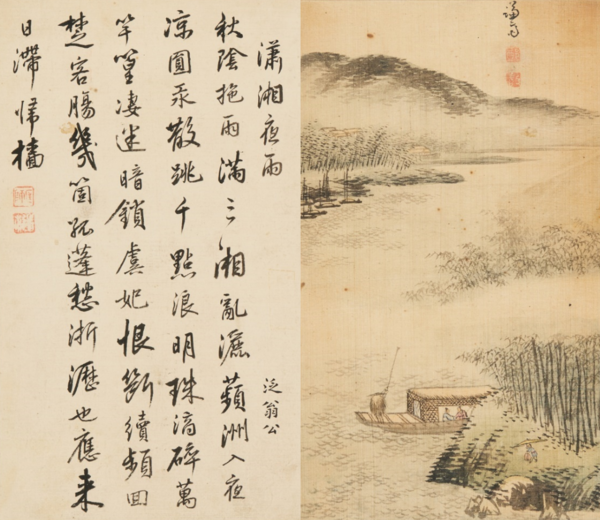 謙齋
瀟湘夜雨
泛翁公
秋陰拖雨滿三湘亂灑蘋洲入夜
凉圓汞散跳千點浪明珠滴碎萬
竿篁凄迷暗鎖虞妃恨斷續頻回
楚客腸幾箇孤蓬愁淅瀝也應来
日滯帰檣